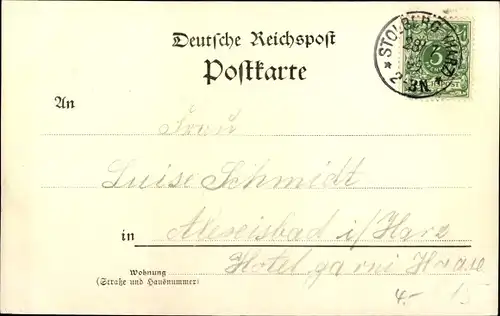 Deutsche Reichspost
Postkarte
STOLBERG (HARZ)
2-3N
5
An
Frau
Luise Schmidt
in Alexisbad i/Harz
Hotel garni Hrase
Wohnung
(Straße und Hausnummer)
4.- 15